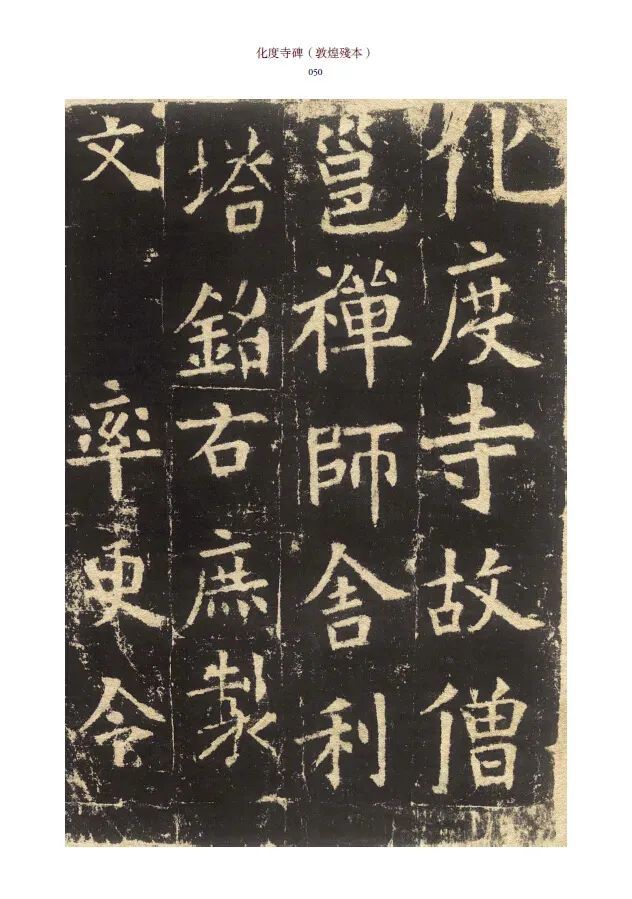 化度寺碑（敦煌殘本）
050
化度寺故僧
邕禪師舍利
塔銘右庶製
文 率更令